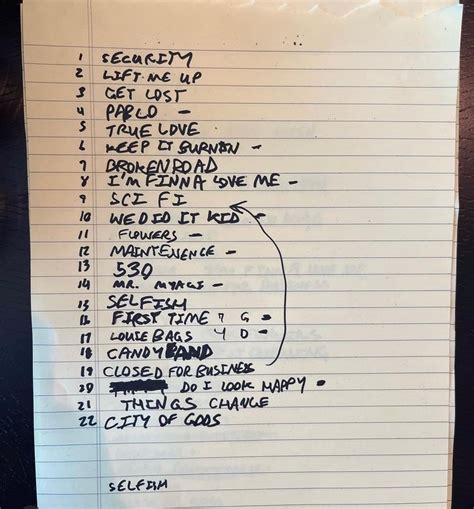 1 SECURITY
2 LIFT ME UP
3 GET LOST
4 PABLO -
5 TRUE LOVE
6 KEEP IT BURNAN -
7 BROKEN ROAD
8 I'M FINNA LOVE ME -
9 SCI FI
10 WE DID IT KID -
11 FLOWERS -
12 MAINTENENCE -
13 530
14 MR. MYAGI -
15 SELFISH
16 FIRST TIME 7 G -
17 LOUIE BAGS 4 D -
18 CANDY
19 CLOSED FOR BUSINESS
20 DO I LOOK HAPPY -
21 THINGS CHANGE
22 CITY OF GODS
SELFISH